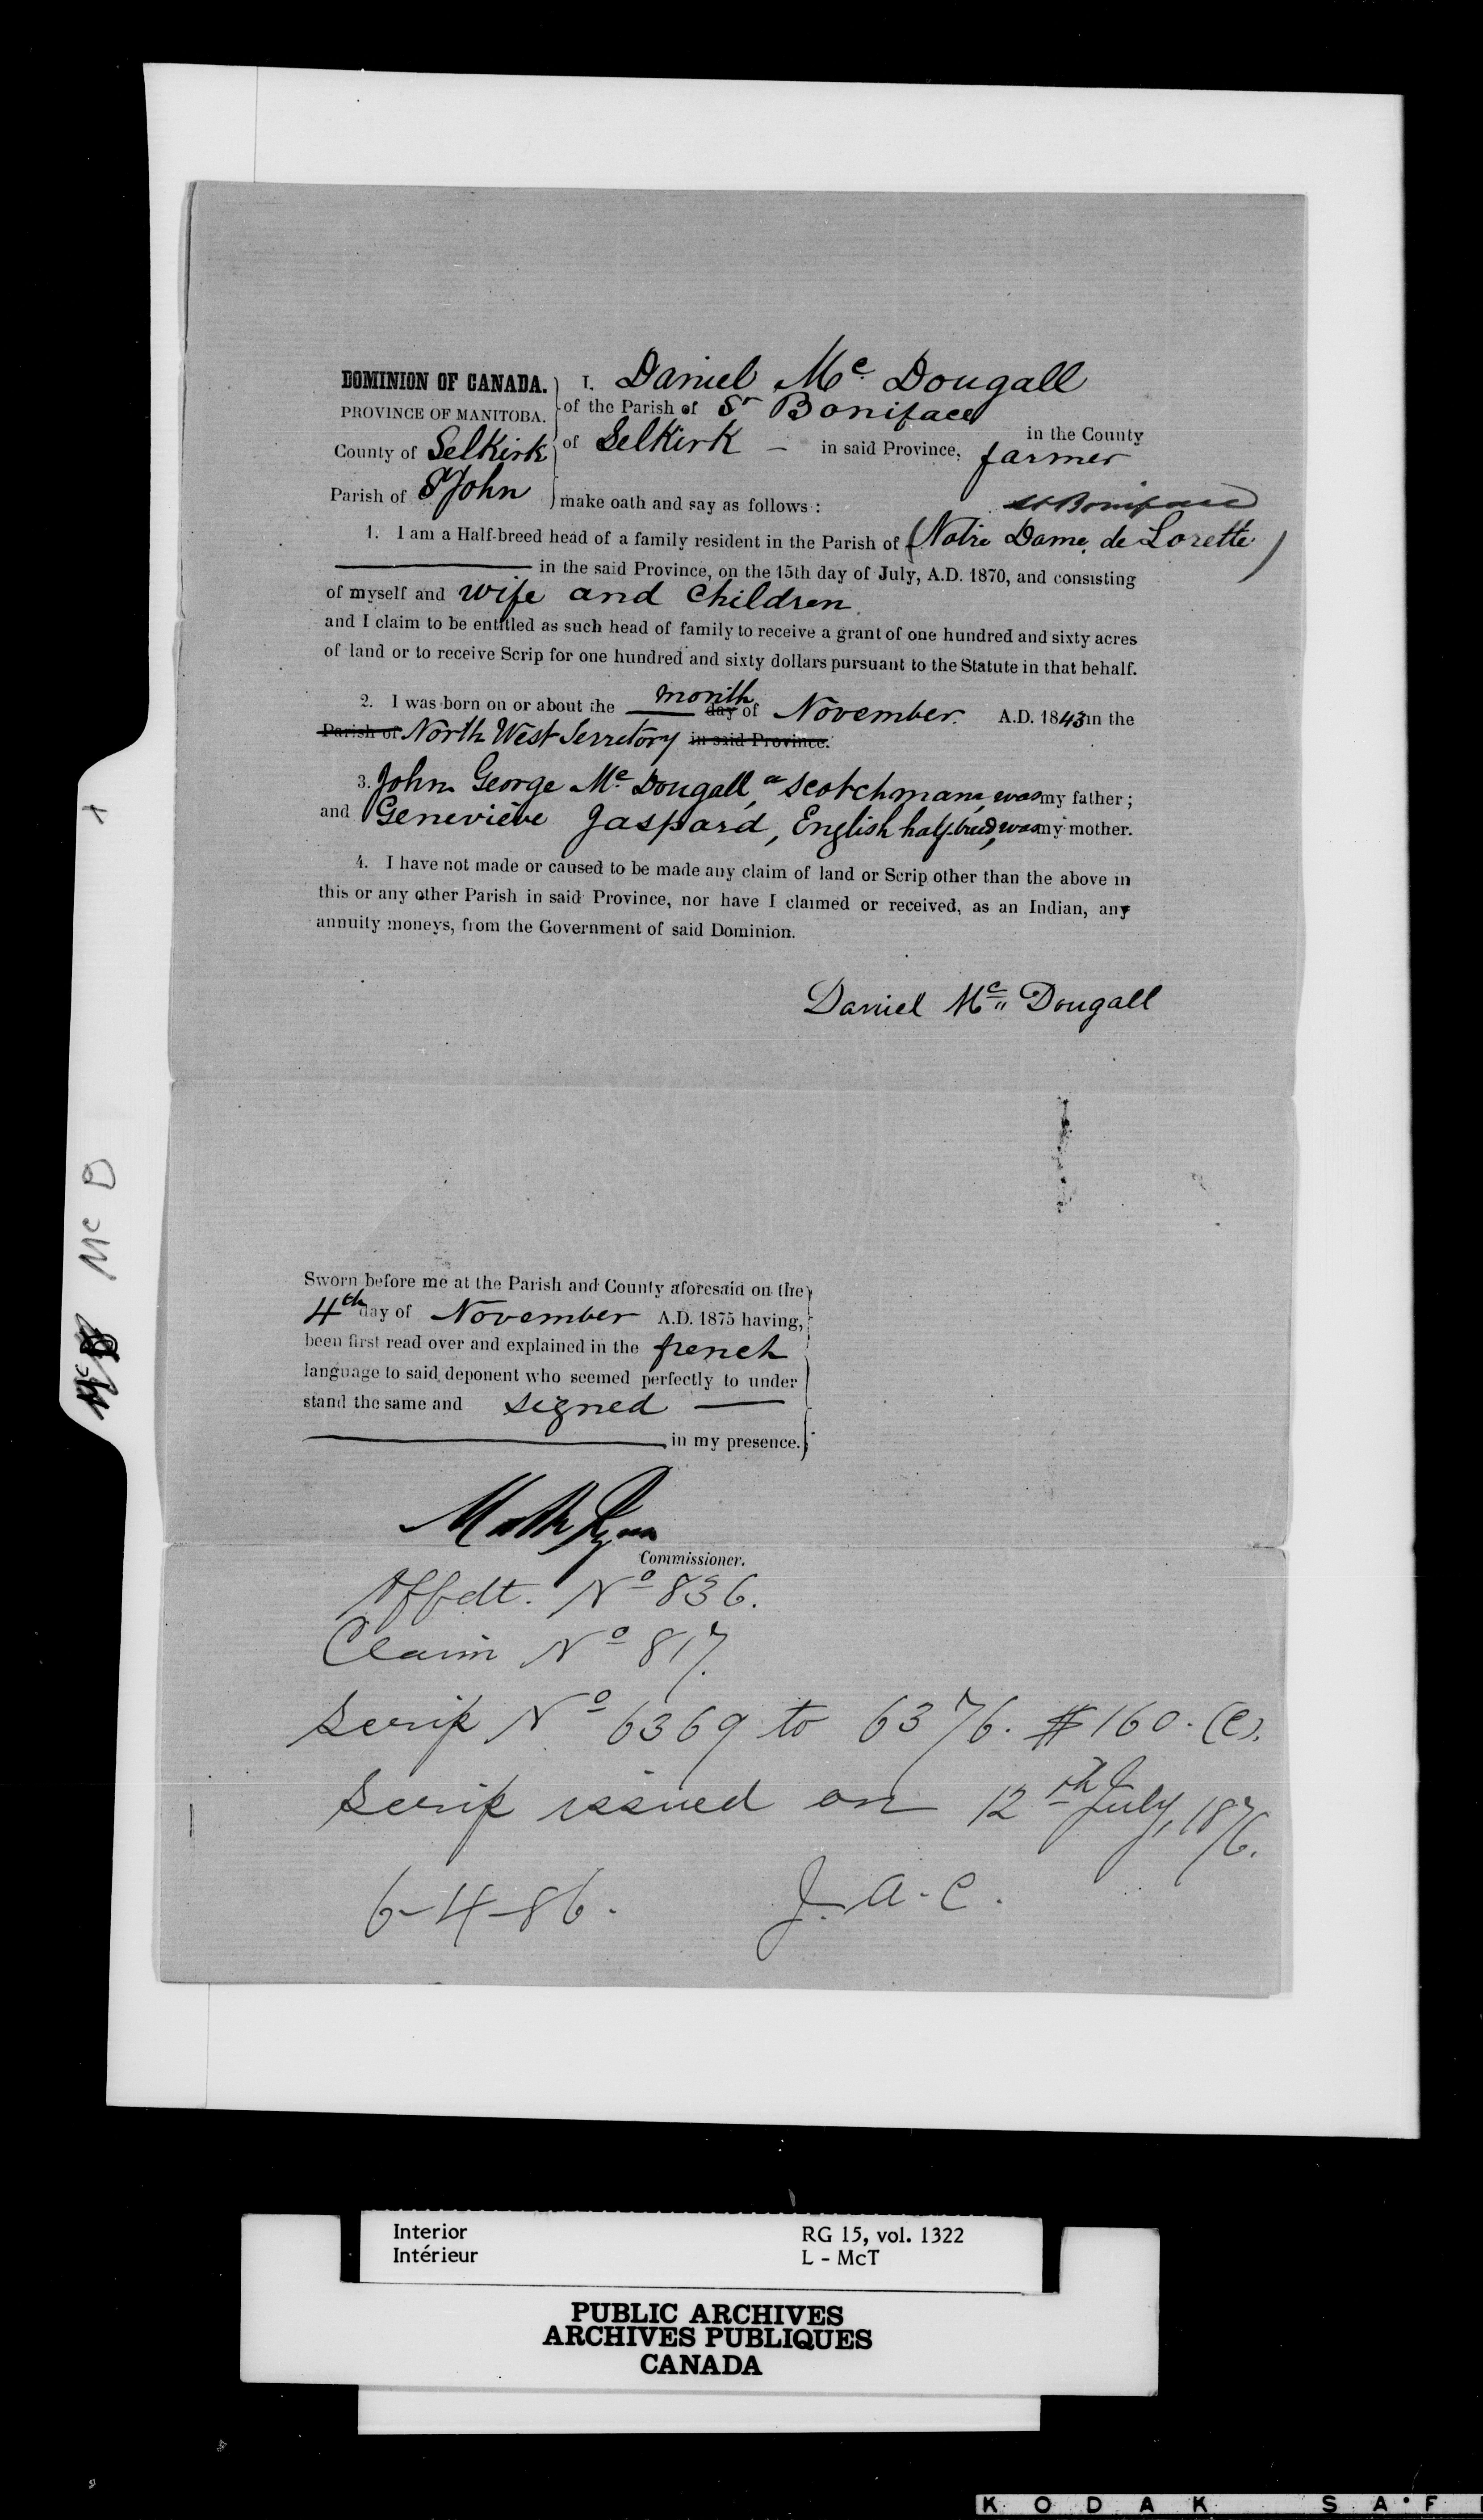 DOMINION OF CANADA.
PROVINCE OF MANITOBA.
County of Selkirk
Parish of St John
I. Daniel Mc Dougall
of the Parish of St Boniface
in the County
of Selkirk — in said Province, farmer
make oath and say as follows:
St Boniface
1. I am a Half-breed head of a family resident in the Parish of (Notre Dame de Lorette)
in the said Province, on the 15th day of July, A.D. 1870, and consisting
of myself and wife and children
and I claim to be entitled as such head of family to receive a grant of one hundred and sixty acres
of land or to receive Scrip for one hundred and sixty dollars pursuant to the Statute in that behalf.
2. I was born on or about the month day of November. A.D. 1843 in the
Parish of North West Territory in said Province.
3. John George Mc Dougall, a Scotchman, was my father;
and Genevieve Jaspard, English halfbreed, was my mother.
4. I have not made or caused to be made any claim of land or Scrip other than the above in
this or any other Parish in said Province, nor have I claimed or received, as an Indian, any
annuity moneys, from the Government of said Dominion.
Daniel Mc Dougall
Sworn before me at the Parish and County aforesaid on the
4th day of November A.D. 1875 having,
been first read over and explained in the french
language to said deponent who seemed perfectly to under
stand the same and signed —
in my presence.
Commissioner.
Affdt. No 836.
Claim No 817.
Scrip No 6369 to 6376. $160. (C).
Scrip issued on 12th July, 1876.
6-4-86. J.A.C.
Mc D
Interior
Intérieur
RG 15, vol. 1322
L - McT
PUBLIC ARCHIVES
ARCHIVES PUBLIQUES
CANADA
KODAK SAF